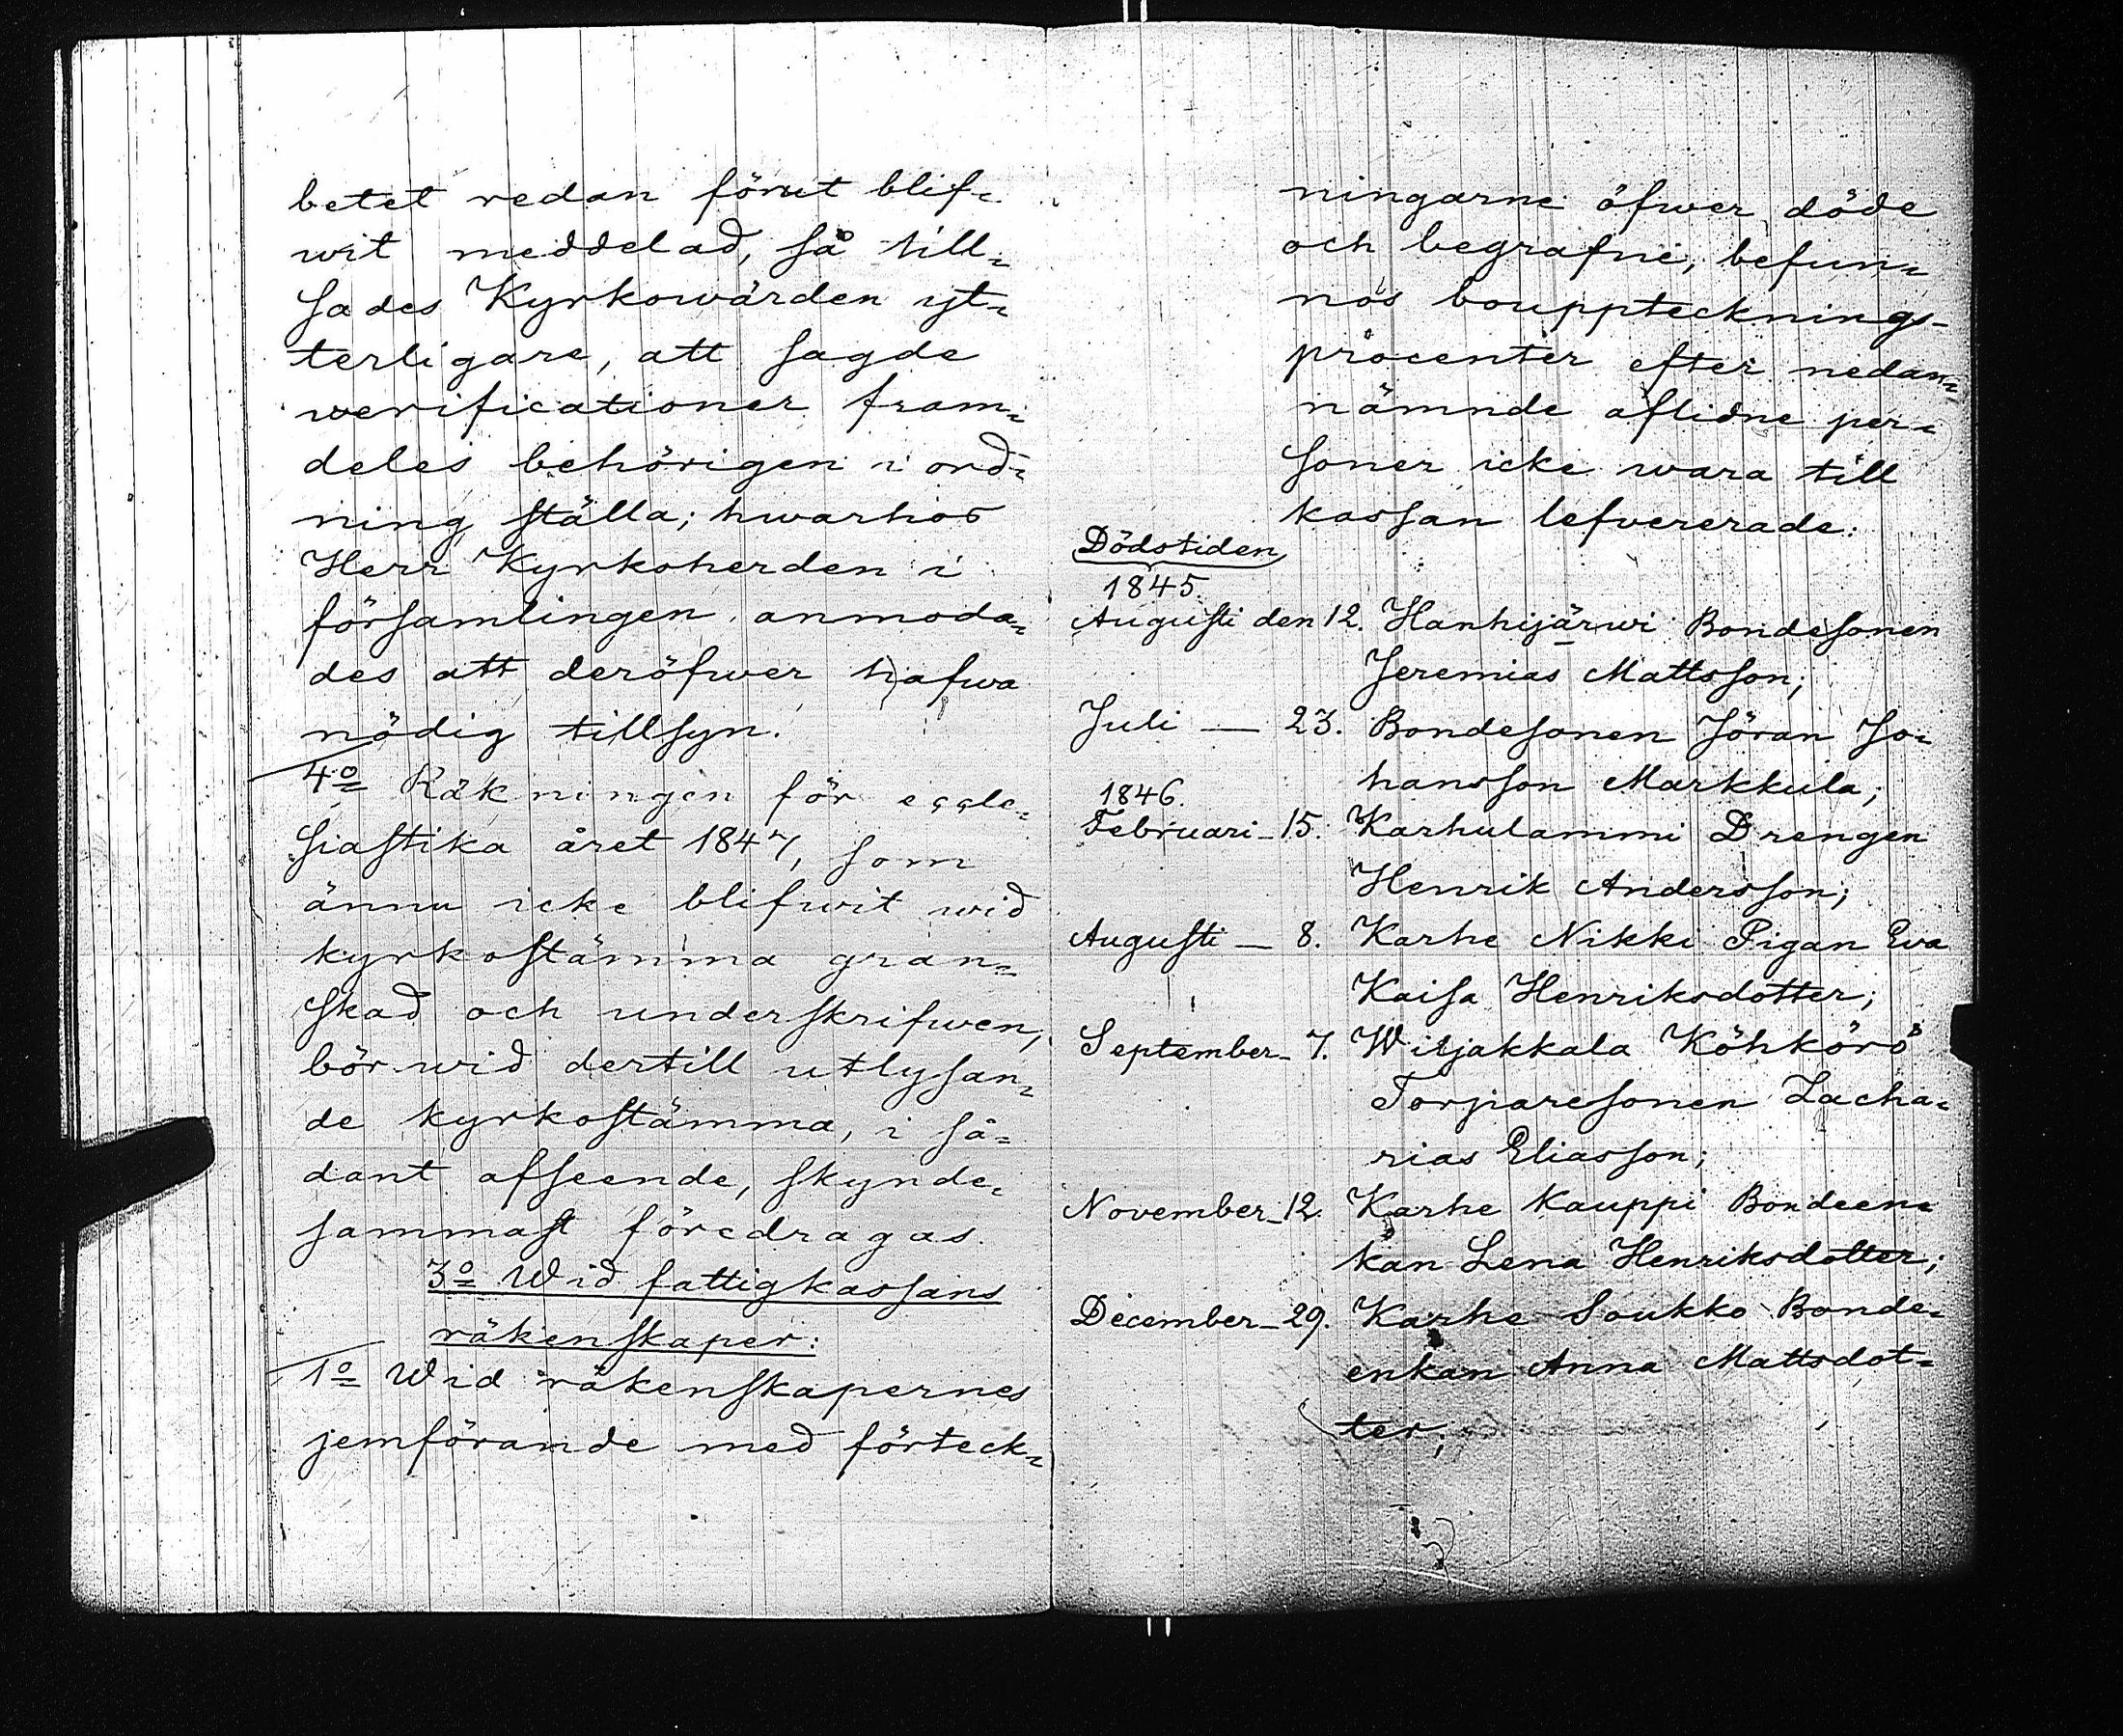 betet redan förut blif-
wit meddelad, så till-
sades Kyrkowärden yt-
terligare, att sagde
werificationer fram-
deles behörigen i ord-
ning ställa; hwarhos
Herr Kyrkoherden i
församlingen anmoda-
des att deröfwer hafwa
nödig tillsyn.
4o Räkningen för eccle-
siastika året 1847, som
ännu icke blifwit wid
kyrkostämma gran-
skad och underskrifwen,
bör wid dertill utlysan-
de kyrkostämma, i så-
dant afseende, skynde-
sammast föredragas.
3o Wid fattigkassans
räkenskaper:
1o Wid räkenskapernes
jemförande med förteck-
ningarne öfwer döde
och begrafne, befun-
nos bouppteknings-
procenter efter nedan-
nämnde aflidne per-
soner icke wara till
kassan lefvererade:
Dödstiden
1845.
Augusti den 12. Hanhijärwi Bondesonen
Jeremias Mattsson;
Juli — 23. Bondesonen Jöran Jo-
hansson Markkula;
1846.
Februari - 15. Karhulammi Drengen
Henrik Andersson;
Augusti — 8. Karhe Nikki Pigan Eva
Kaisa Henriksdotter;
September - 7. Wiljakkala Köhkörö
Torparesonen Zacha-
rias Eliasson;
November - 12. Karhe Kauppi Bondeen-
kan Lena Henriksdotter;
December - 29. Karhe Soukko Bonde-
enkan Anna Mattsdot-
ter;